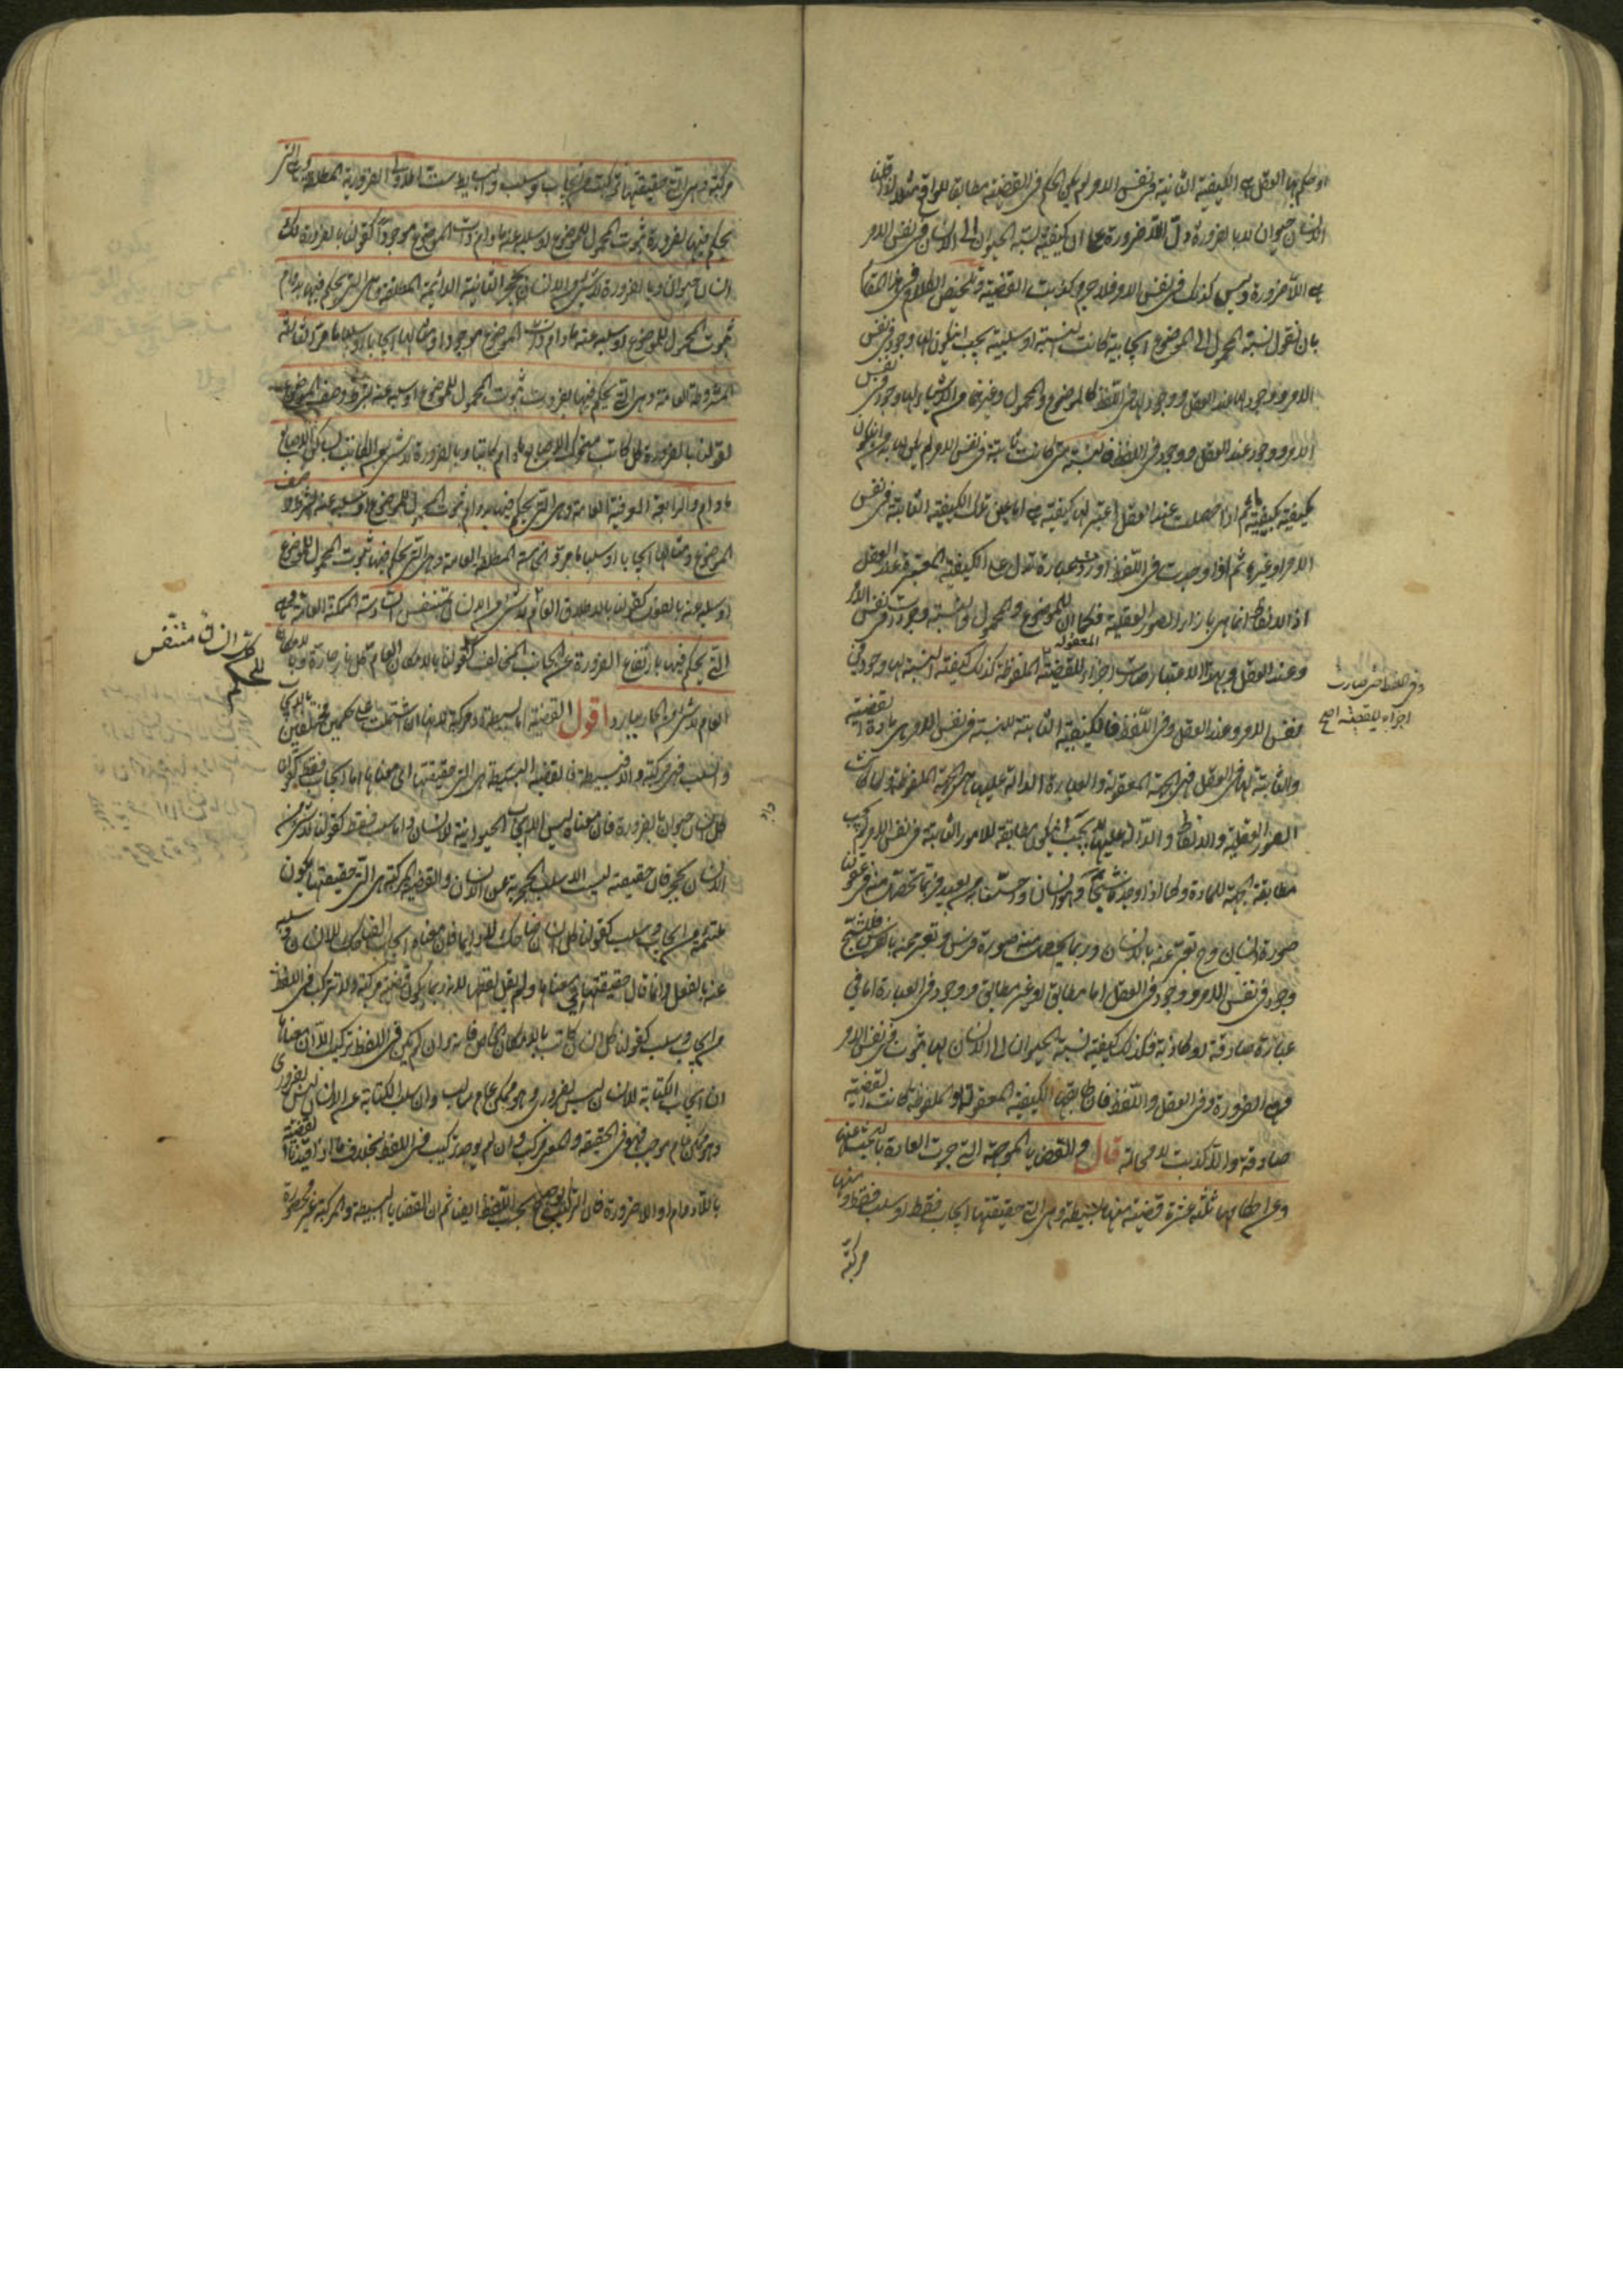 او حكم بها العقل هي الكيفية الثابتة في نفس الامر لم يكن الحكم في القضية مطابقا للواقع مثلا اذا قلنا
الانسان حيوان لا بالضرورة دل اللاضرورة على ان كيفية نسبة الحيوان الى الانسان في نفس الامر
هي اللاضرورة وليس كذلك في نفس الامر فلا جرم كذبت القضية وتلخيص الكلام في هذا المقام
بان نقول نسبة المحمول الى الموضوع ايجابية كانت النسبة او سلبية يجب ان يكون لها وجود في نفس
الامر ووجود لها عند العقل ووجود لها في اللفظ كالموضوع والمحمول وغيرهما من الاشياء لها وجود في نفس
الامر ووجود عند العقل ووجود في اللفظ فالنسبة متى كانت ثابتة في نفس الامر لم يكن لها بد من ان يكون
مكيفة بكيفية ما ثم اذا حصلت عند العقل اعتبر لها كيفية هي اما عين تلك الكيفية الثابتة في نفس
الامر او غيرها ثم اذا وجدت في اللفظ اوردت عبارة تدل على الكيفية المعتبرة عند العقل
اذ الالفاظ انما هي بازاء الصور العقلية فكما ان للموضوع والمحمول والنسبة وجودات في نفس الامر
وعند العقل وبهذا الاعتبار صارت اجزاء للقضية المعقولة الملفوظة كذلك كيفية النسبة لها وجود في
نفس الامر وعند العقل وفي اللفظ فالكيفية الثابتة للنسبة في نفس الامر هي مادة القضية
والثابتة لها في العقل هي الجهة المعقولة والعبارة الدالة عليها هي الجهة الملفوظة ولما كانت
الصور العقلية والالفاظ الدالة عليها لا يجب ان يكون مطابقة للامور الثابتة في نفس الامر لم يجب
مطابقة الجهة للمادة وكما اذا وجد شبحا هو انسان واحسسناه من بعيد فربما تحصل منه في عقولنا
صورة انسان وح نعبر عنه بالانسان وربما يحصل منه صورة فرس ونعبر عنه بالفرس فللشبح
وجود في نفس الامر ووجود في العقل اما مطابق او غير مطابق ووجود في العبارة اما في
عبارة صادقة او كاذبة فكذلك كيفية نسبة الحيوان الى الانسان لها ثبوت في نفس الامر
وهي الضرورة وفي العقل واللفظ فان طابقها الكيفية المعقولة او الملفوظة كانت القضية
صادقة والا كذبت لا محالة قال والقضايا الموجهة التي جرت العادة بالبحث عنها
وعن احكامها ثلثة عشرة قضية منها بسيطة وهي التي حقيقتها ايجاب فقط او سلب فقط ومنها
مركبة
وفي اللفظ حتى صارت
اجزاء للقضية اصح
مركبة وهي التي حقيقتها تركبت من ايجاب وسلب والبسايط ست الاولى الضرورية المطلقة وهي التي
يحكم فيها بضرورة ثبوت المحمول للموضوع او سلبه عنه ما دام ذات الموضوع موجودا كقولنا بالضرورة كل
انسان حيوان وبالضرورة لا شيء من الانسان بحجر الثانية الدائمة المطلقة وهي التي يحكم فيها بدوام
ثبوت المحمول للموضوع او سلبه عنه ما دام ذات الموضوع موجودا ومثالها ايجابا وسلبا ما مر الثالثة
المشروطة العامة وهي التي يحكم فيها بضرورة ثبوت المحمول للموضوع او سلبه عنه بشرط وصف الموضوع
كقولنا بالضرورة كل كاتب متحرك الاصابع ما دام كاتبا وبالضرورة لا شيء من الكاتب بساكن الاصابع
ما دام والرابعة العرفية العامة وهي التي يحكم فيها بدوام ثبوت المحمول للموضوع او سلبه عنه بشرط وصف
الموضوع ومثالها ايجابا وسلبا ما مر والخامسة المطلقة العامة وهي التي يحكم فيها بثبوت المحمول للموضوع
او سلبه عنه بالفعل كقولنا بالاطلاق العام لا شيء من الانسان بمتنفس السادسة الممكنة العامة وهي
التي يحكم فيها بارتفاع الضرورة عن الجانب المخالف كقولنا بالامكان العام كل نار حارة وبالامكان
العام لا شيء من الحار ببارد اقول القضية اما بسيطة او مركبة لانها ان اشتملت على حكمين مختلفين بالايجاب
والسلب فهي مركبة والا فبسيطة فالقضية البسيطة هي التي حقيقتها اي معناها اما ايجاب فقط كقولنا
كل انسان حيوان بالضرورة فان معناه ليس الا ايجاب الحيوانية للانسان واما سلب فقط كقولنا لا شيء من
الانسان بحجر فان حقيقته ليست الا سلب الحجرية عن الانسان والقضية المركبة هي التي حقيقتها يكون
ملتئمة من ايجاب وسلب كقولنا كل انسان ضاحك لا دائما فان معناه ايجاب الضحك للانسان وسلبه
عنه بالفعل وانما قال حقيقتها اي معناها ولم يقل لفظها لانه ربما يكون قضية مركبة ولا تركب في اللفظ
من ايجاب وسلب كقولنا كل انسان كاتب بالامكان الخاص فانه وان لم يكن في اللفظ تركيب الا ان معناه
ان ايجاب الكتابة للانسان ليس بضروري وهو ممكن عام سالب وان سلب الكتابة عن الانسان ليس بضروري
وهو ممكن عام موجب فهو في الحقيقة والمعنى مركب وان لم يوجد تركيب في اللفظ بخلاف ما اذا قيدنا القضية
باللادوام او اللاضرورة فان التركيب ح بحسب اللفظ ايضا ثم ان القضايا البسيطة والمركبة غير محصورة
كل انسان متنفس